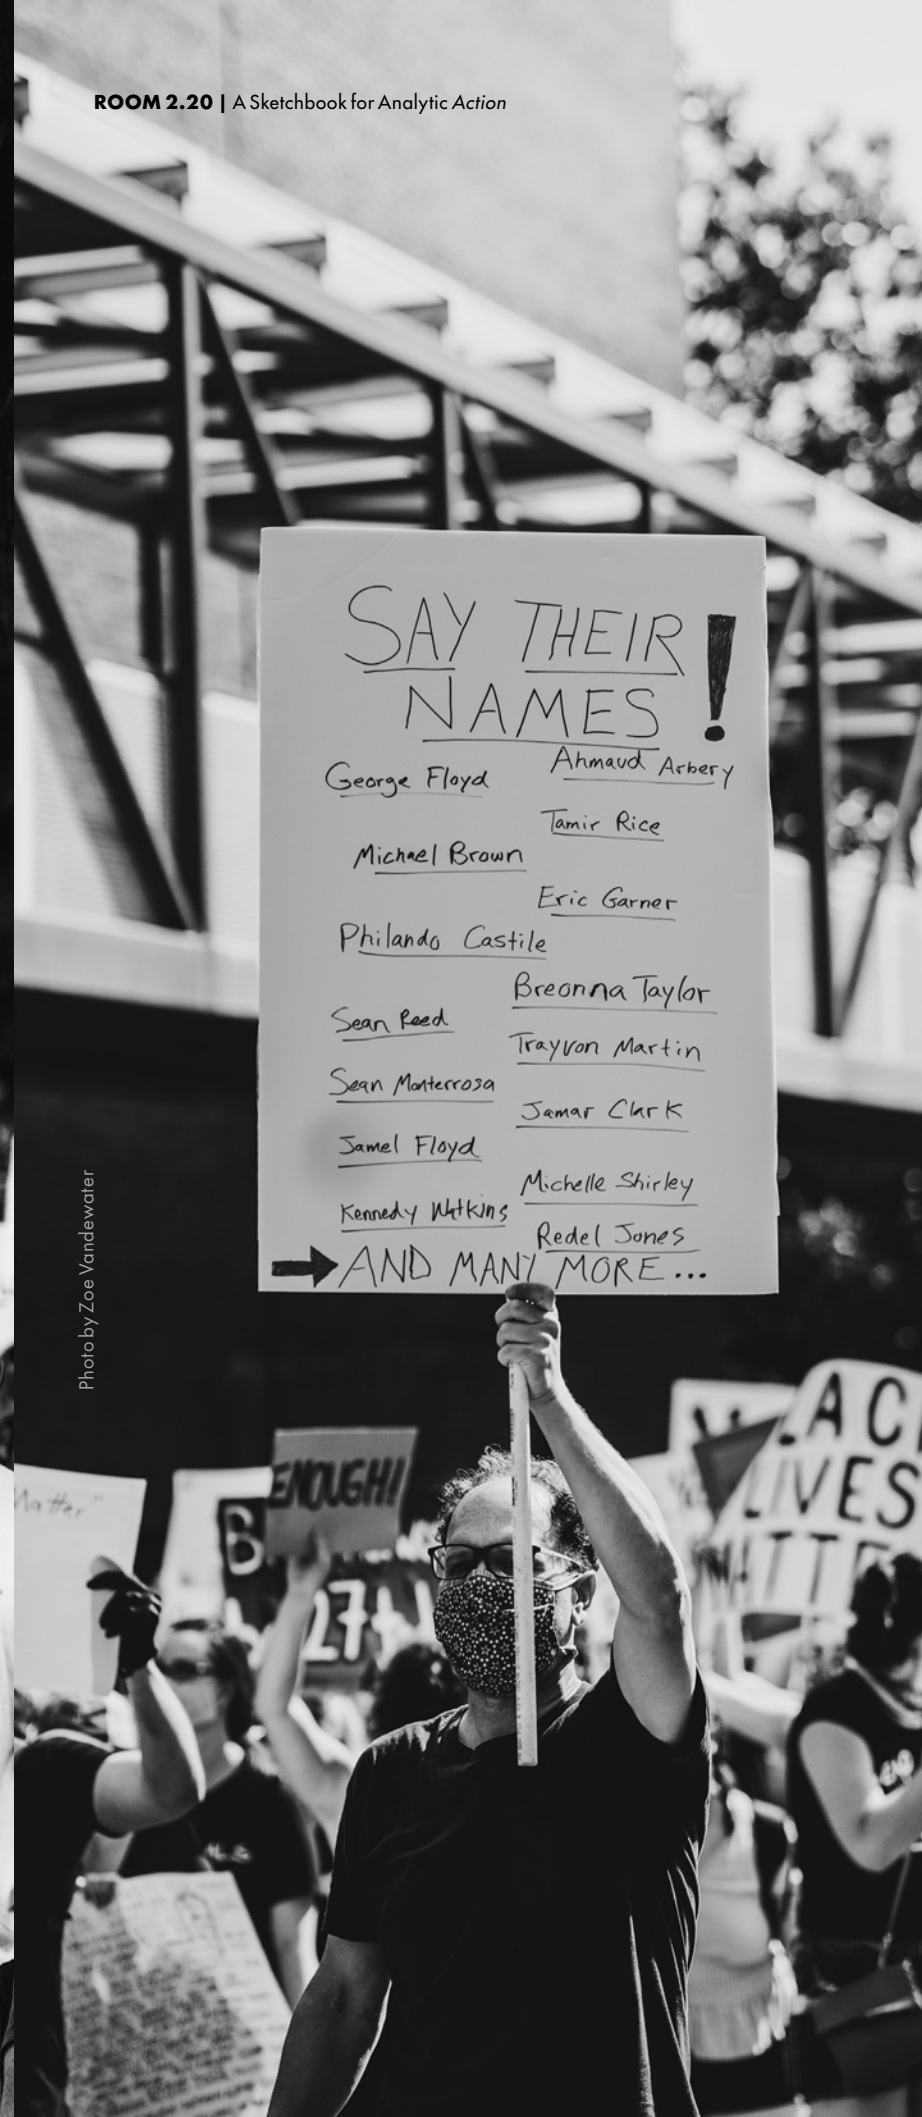 ROOM 2.20 | A Sketchbook for Analytic Action
SAY THEIR
NAMES!
George Floyd
Ahmaud Arbery
Tamir Rice
Michael Brown
Eric Garner
Philando Castile
Breonna Taylor
Sean Reed
Trayvon Martin
Sean Monterrosa
Jamar Clark
Jamel Floyd
Michelle Shirley
Kennedy Watkins
Redel Jones
AND MANY MORE...
Photo by Zoe Vandewater
ENOUGH!
Matter"
LIVES